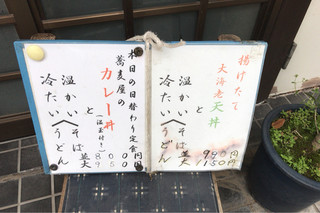 揚げたて
大海老天丼
と
温かい
冷たい
そば
うどん
並
大
本日の日替わり定食
蕎麦屋の
カレー丼
(温玉付き)
と
温かい
冷たい
そば
うどん
並
大